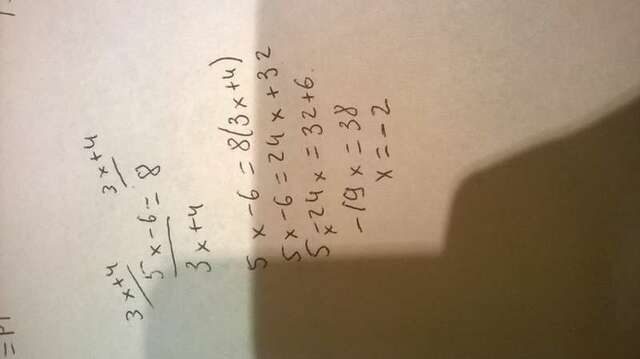 = pi
3x+4/ 3x+4/
5x-6 = 8
3x+4
5x-6 = 8(3x+4)
5x-6 = 24x+32
5x-24x = 32+6
-19x = 38
x = -2